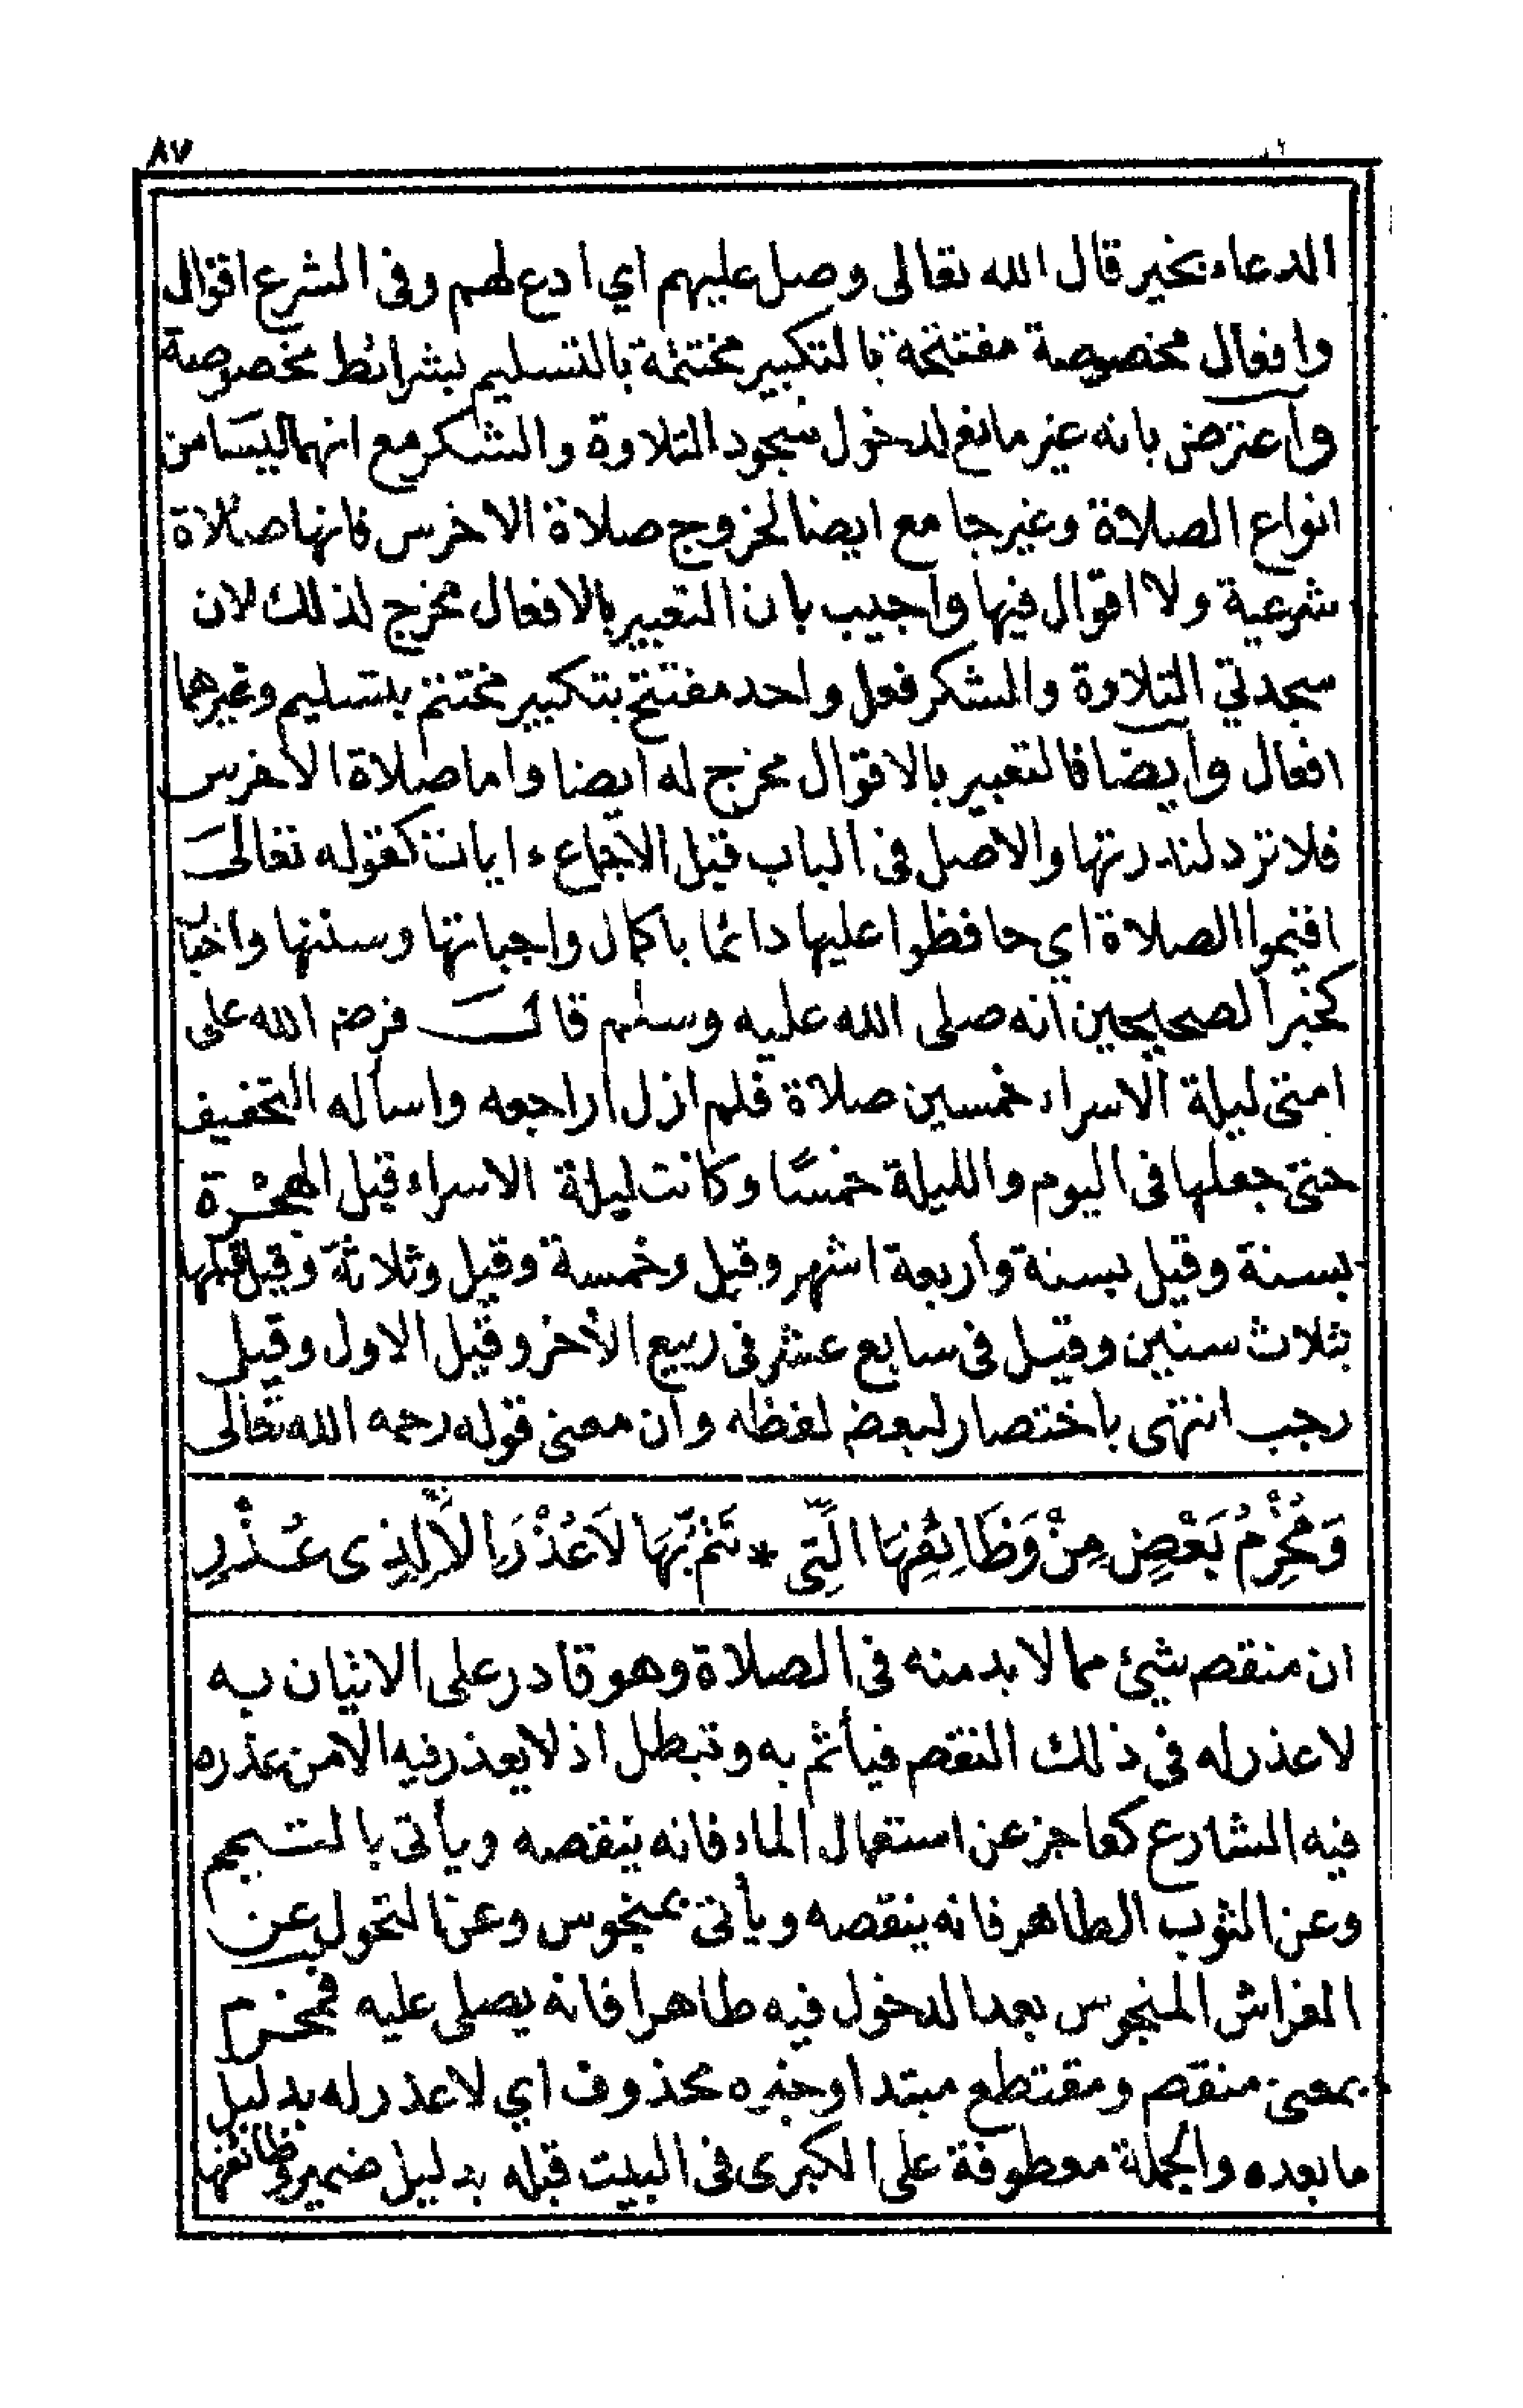 ٨٧
الدعاء بخير قال الله تعالى وصل عليهم اي ادع لهم وفى الشرع اقوال
وافعال مخصوصة مفتتحة بالتكبير مختتمة بالتسليم بشرائط مخصوصة
واعترض بانه غير مانع لدخول سجود التلاوة والشكر مع انهما ليسا من
انواع الصلاة وغير جامع ايضا لخروج صلاة الاخرس فانها صلاة
شرعية ولا اقوال فيها واجيب بان التعبير بالافعال مخرج لذلك لان
سجدتي التلاوة والشكر فعل واحد مفتتح بتكبير مختتم بتسليم وغيرهما
افعال وايضا فالتعبير بالاقوال مخرج له ايضا واما صلاة الاخرس
فلا ترد لندرتها والاصل فى الباب قبل الاجماع ايات كقوله تعالى
اقيموا الصلاة اي حافظوا عليها دائما باكمال واجباتها وسننها واخبار
كخبر الصحيحين انه صلى الله عليه وسلم قال فرض الله على
امتى ليلة الاسراء خمسين صلاة فلم ازل اراجعه واسأله التخفيف
حتى جعلها فى اليوم والليلة خمسًا وكانت ليلة الاسراء قبل الهجرة
بسنة وقيل بسنة وأربعة اشهر وقيل وخمسة وقيل وثلاثة وقيل قبلها
بثلاث سنين وقيل فى سابع عشر فى ربيع الأخر وقيل الاول وقيل
رجب انتهى باختصار لبعض لفظه وان معنى قوله رحمه الله تعالى
وَمُخْرِمُ بَعْضٍ مِنْ وَظَائِفِهَا الَّتِى * تَتِمُّ بِهَا لَا عُذْرَ اِلَّا لِذِى عُذْرِ
ان منقص شيئ مما لا بد منه فى الصلاة وهو قادر على الاتيان به
لا عذر له فى ذلك النقص فيأثم به وتبطل اذ لا يعذر فيه الا من عذره
فيه الشارع كعاجز عن استعمال الماء فانه ينقصه ويأتى بالتيمم
وعن الثوب الطاهر فانه ينقصه ويأتى بمنجوس وعن التحول عن
الفراش المنجوس بعد الدخول فيه طاهرا فانه يصلى عليه فمخرم
بمعنى منقص ومقتطع مبتدا وخبره محذوف اي لا عذر له بدليل
ما بعده والجملة معطوفة على الكبرى فى البيت قبله بدليل ضمير وظائفها